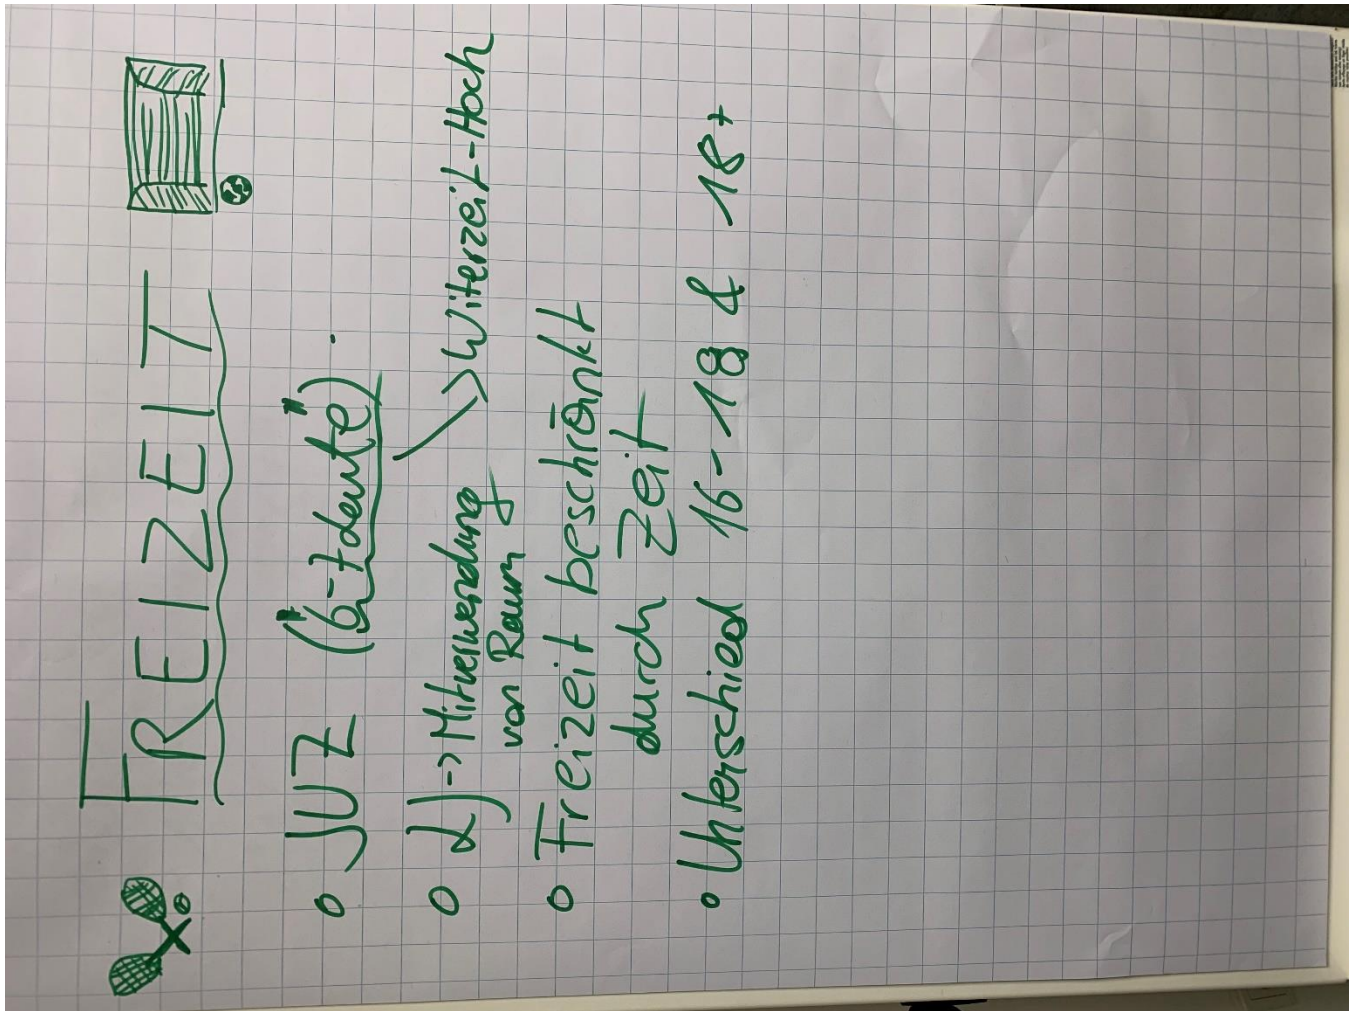 FREIZEIT
o JUZ ("6-7 Leute")
o LJ -> Mitverwendung -> Witerzeit-Hoch
von Raum
o Freizeit beschränkt
durch Zeit
o Unterschied 16-18 & 18+